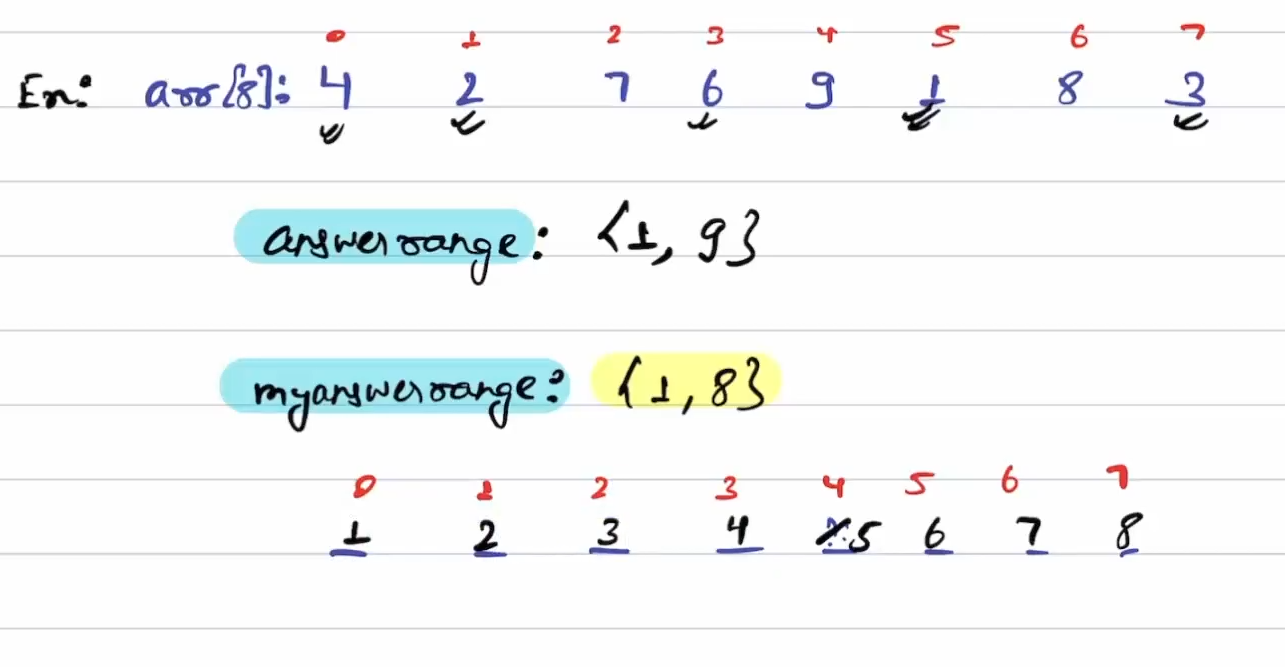 0 1 2 3 4 5 6 7
Ex: arr[8]: 4 2 7 6 9 1 8 3
answer range: {1, 9}
my answer range: {1, 8}
0 1 2 3 4 5 6 7
1 2 3 4 5 6 7 8